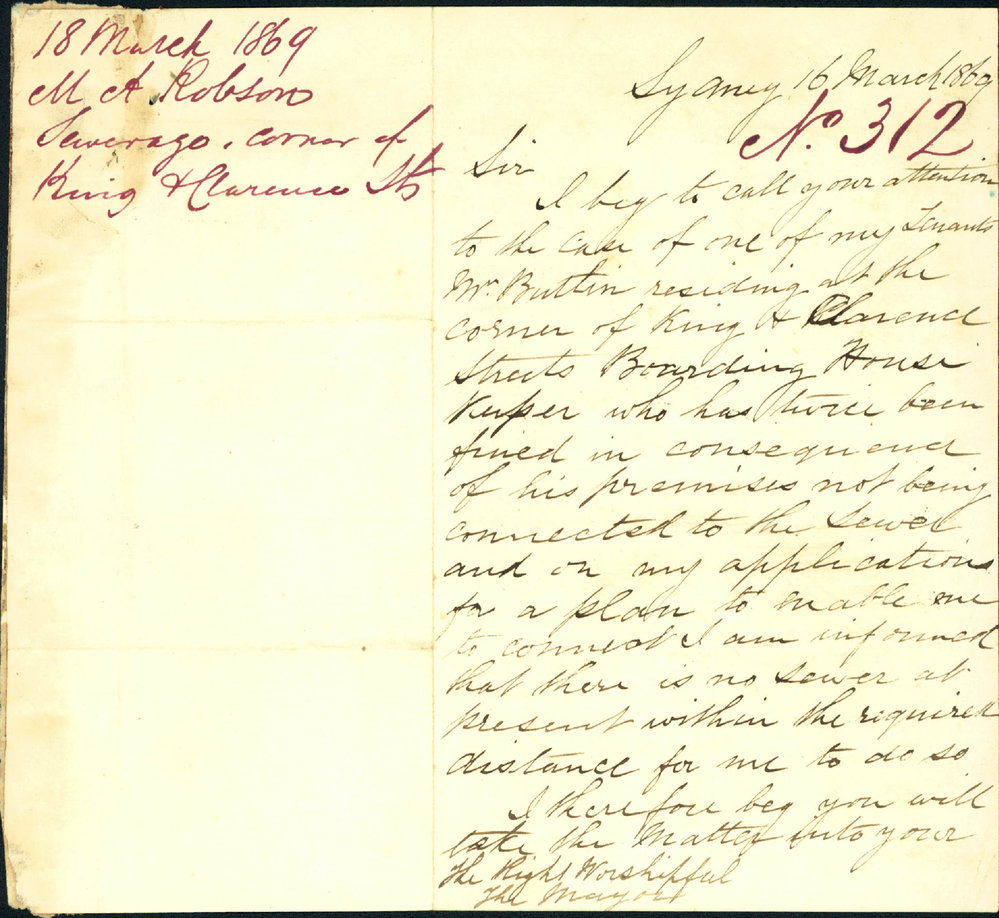 18 March 1869
M A Robson
Sewerage, corner of
King & Clarence Sts
Sydney 16 March 1869
No. 312
Sir
I beg to call your attention
to the case of one of my Tenants
Mr. Butlin residing at the
corner of King & Clarence
Streets Boarding House
Keeper who has twice been
fined in consequence
of his premises not being
connected to the Sewer
and on my applications
for a plan to enable me
to connect I am informed
that there is no sewer at
present within the required
distance for me to do so
I therefore beg you will
take the Matter into your
The Right Worshipful
The Mayor